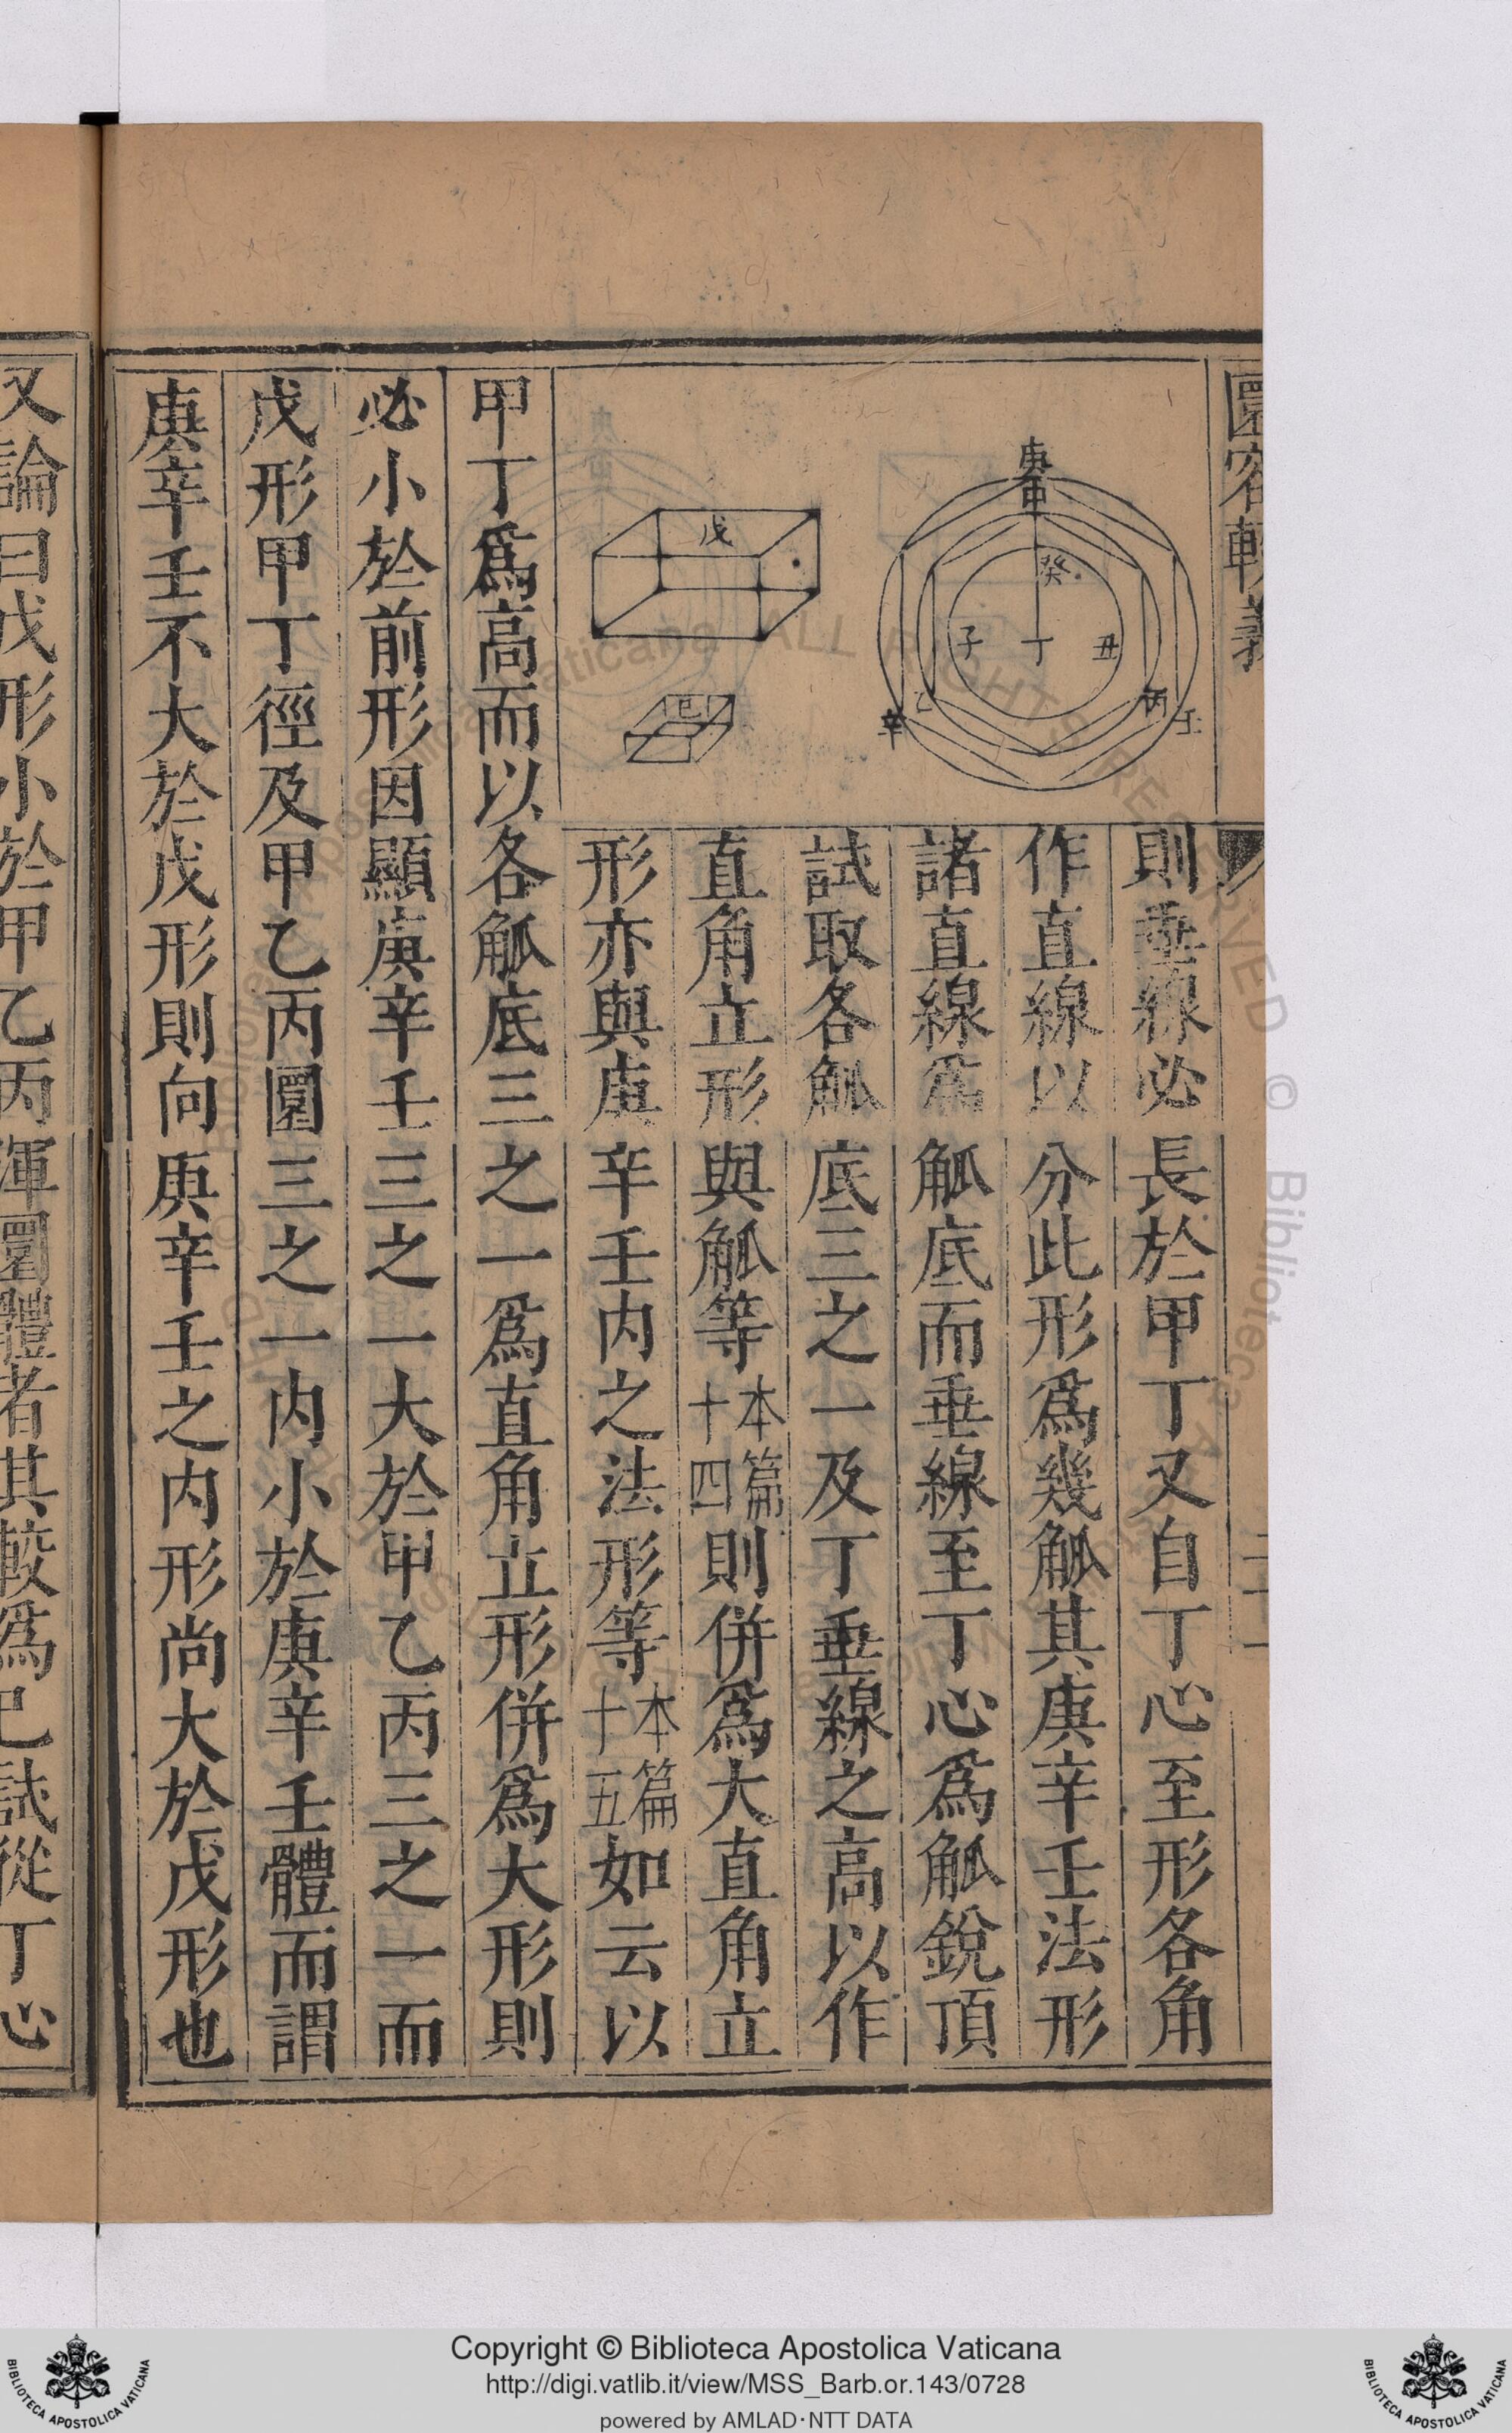 圜容較義
二十一
庚
甲
癸
子
丁
丑
乙
丙
辛
壬
戊
己
則垂線必長於甲丁又自丁心至形各角
作直線以分此形爲幾觚其庚辛壬法形
諸直線爲觚底而垂線至丁心爲觚銳頂
試取各觚底三之一及丁垂線之高以作
直角立形與觚等本篇十四則併爲大直角立
形亦與庚辛壬内之法形等本篇十五如云以
甲丁爲高而以各觚底三之一爲直角立形併爲大形則
必小於前形因顯庚辛壬三之一大於甲乙丙三之一而
戊形甲丁徑及甲乙丙圜三之一内小於庚辛壬體而謂
庚辛壬不大於戊形則向庚辛壬之内形尚大於戊形也
又論曰戊形小於甲乙丙渾圜體者其較爲己試從丁心
Copyright © Biblioteca Apostolica Vaticana
http://digi.vatlib.it/view/MSS_Barb.or.143/0728
powered by AMLAD·NTT DATA
BIBLIOTECA APOSTOLICA VATICANA
BIBLIOTECA APOSTOLICA VATICANA